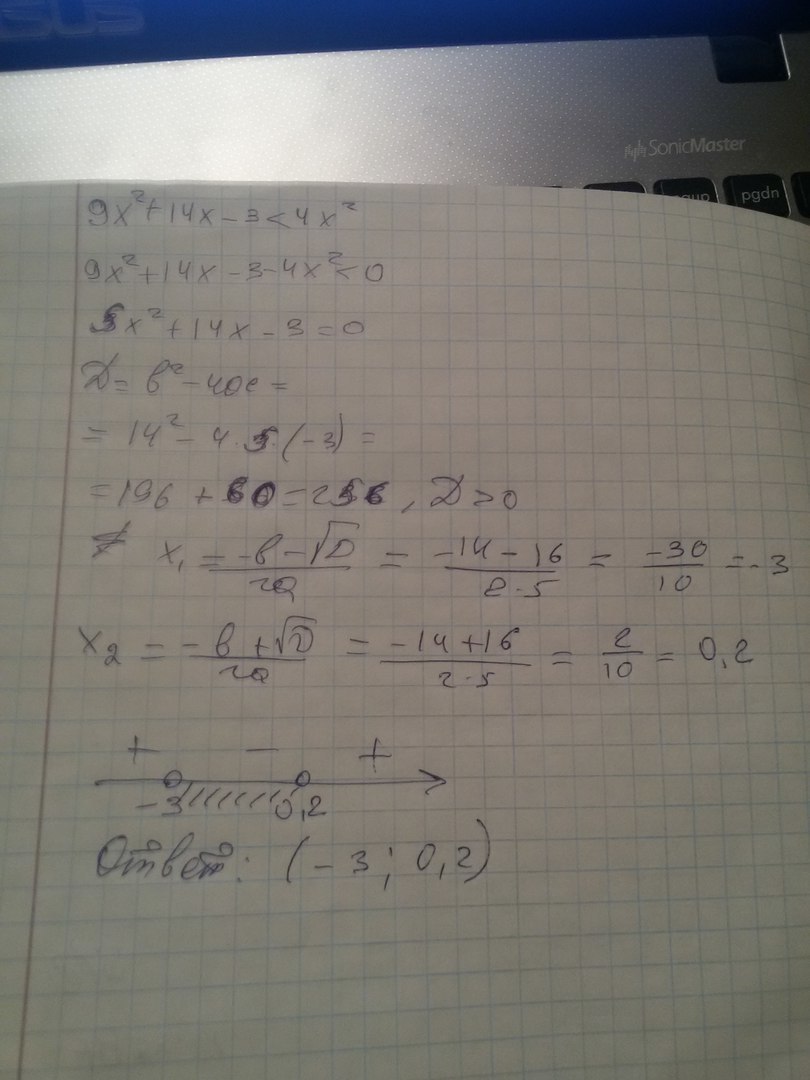 SUS
SonicMaster
pgdn
9x²+14x-3<4x²
9x²+14x-3-4x²<0
5x²+14x-3=0
D=b²-4ac=
=14²-4·5·(-3)=
=196+60=256, D>0
x₁ = (-b-√D)/2a = (-14-16)/2·5 = -30/10 = -3
x₂ = (-b+√D)/2a = (-14+16)/2·5 = 2/10 = 0,2
+ - +
-3 0,2
Ответ: (-3; 0,2)